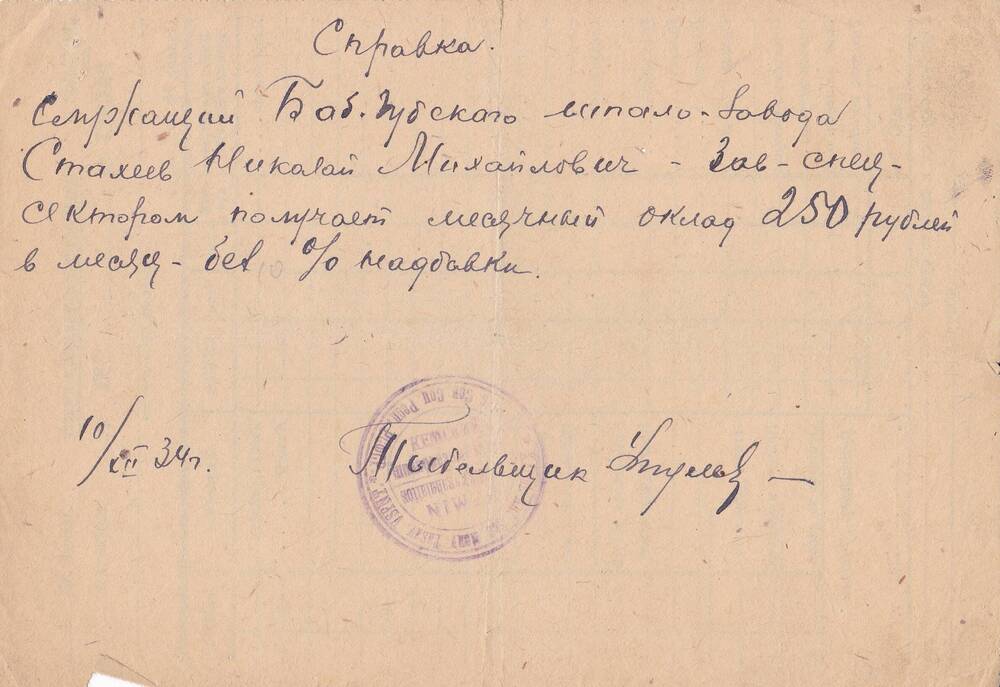 Справка.
Служащий Баб.Губского шпало-завода
Стахеев Николай Михайлович - Зав-спец-
сектором получает месячный оклад 250 рублей
в месяц - без % надбавки.
10/XII 34г.
Табельщик